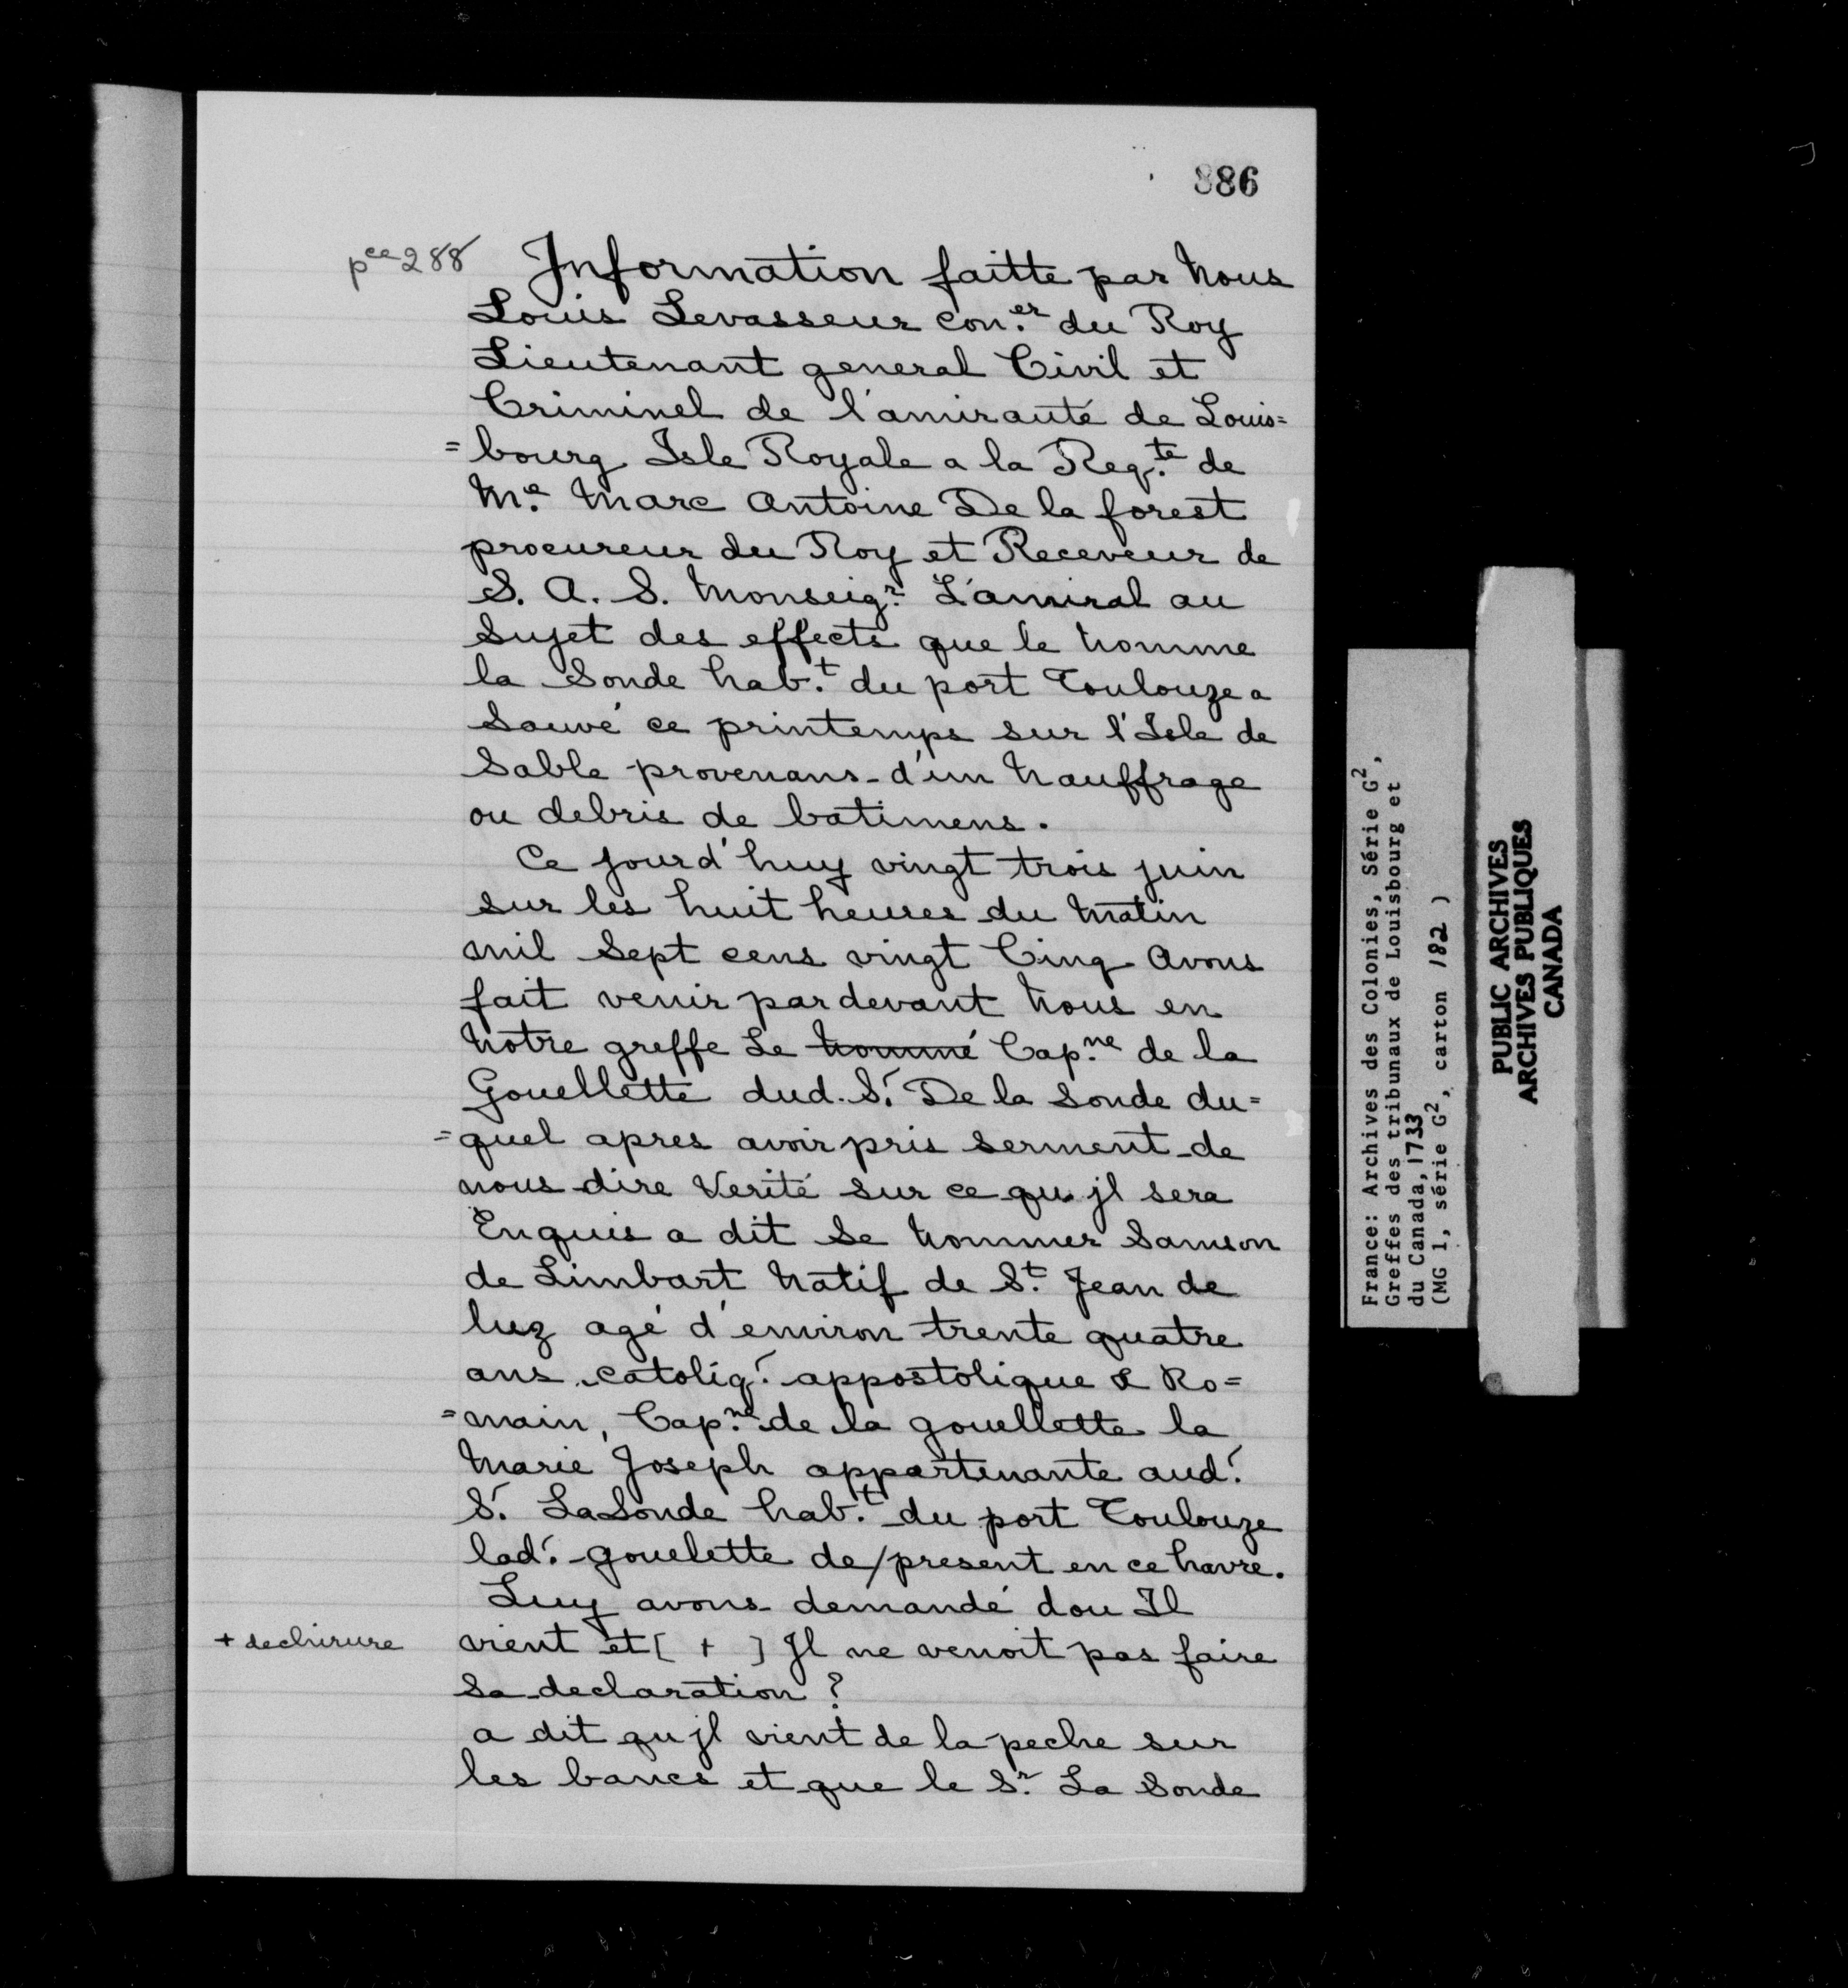 886
pce 288 Information faitte par Nous
Louis Levasseur con.er du Roy
Lieutenant general Civil et
Criminel de l'amirauté de Louis=
=bourg Isle Royale a la Req.te de
M.e Marc Antoine De la forest
procureur du Roy et Receveur de
S. A. S. Monseig.r L'amiral au
Sujet des effects que le Nomme
la Sonde hab.t du port Toulouze a
Sauvé ce printemps sur l'Isle de
Sable provenans d'un Nauffrage
ou debris de batimens.
Ce jourd'huy vingt trois juin
sur les huit heures du Matin
mil Sept cens vingt Cinq Avons
fait venir pardevant Nous en
Notre greffe Le Nommé Cap.ne de la
Gouellette dud. S.r De la Sonde du=
=quel apres avoir pris serment de
nous dire Verité sur ce qu jl sera
Enquis a dit Se Nommer Samson
de Limbart Natif de S.t Jean de
luz agé d'environ trente quatre
ans catoliq.' appostolique & Ro=
=main, Cap.ne de la gouellette la
Marie Joseph appartenante aud.'
S.r LaSonde hab.t du port Toulouze
lad.' gouelette de/present en ce havre.
Luy avons demandé dou Il
+ dechirure vient et [ + ] Jl ne venoit pas faire
Sa declaration ?
a dit qu jl vient de la peche sur
les bancs et que le S.r La Sonde
France: Archives des Colonies, Série G2,
Greffes des tribunaux de Louisbourg et
du Canada, 1733
(MG 1, série G2, carton 182 )
PUBLIC ARCHIVES
ARCHIVES PUBLIQUES
CANADA